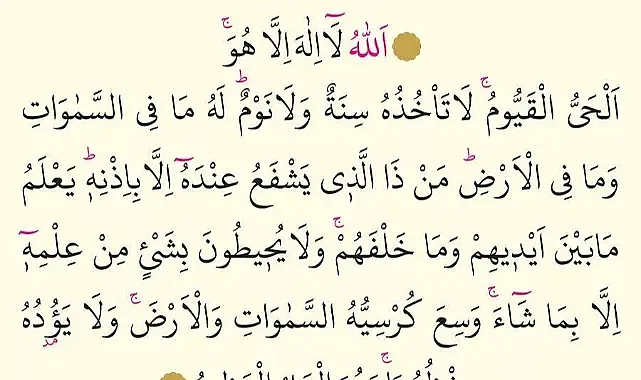 اَللّٰهُ لَٓا اِلٰهَ اِلَّا هُوَۚ
اَلْحَيُّ الْقَيُّومُۚ لَا تَأْخُذُهُ سِنَةٌ وَلَا نَوْمٌۜ لَهُ مَا فِى السَّمٰوَاتِ
وَمَا فِى الْاَرْضِۜ مَنْ ذَا الَّذٖى يَشْفَعُ عِنْدَهُٓ اِلَّا بِاِذْنِهٖۜ يَعْلَمُ
مَابَيْنَ اَيْدٖيهِمْ وَمَا خَلْفَهُمْۚ وَلَا يُحٖيطُونَ بِشَیْءٍ مِنْ عِلْمِهٖٓ
اِلَّا بِمَا شَٓاءَۚ وَسِعَ كُرْسِيُّهُ السَّمٰوَاتِ وَالْاَرْضَۚ وَلَا يَؤُ۫دُهُ